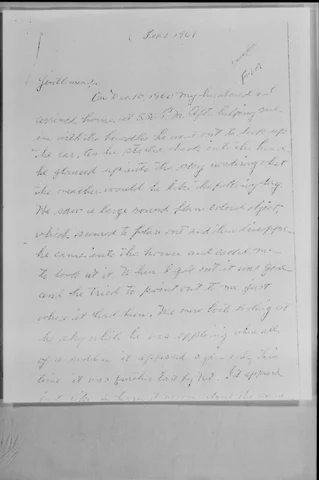 Jan 2 1961
Gentlemen,
On Dec 15, 1960 my husband and I
arrived home at 5:20 P.M. After helping me
in with the bundles he went out to lock up
the car. As he started back into the house
he glanced up into the sky wondering what
the weather would be like the following day.
He saw a large round flame colored object,
which seemed to flare out and then disappear.
he came into the house and asked me
to look at it. When I got out it was gone
and he tried to point out to me just
where it had been. We were both looking at
the sky while he was explaining when all
of a sudden it appeared again only this
time it was further East by N.E. It appeared